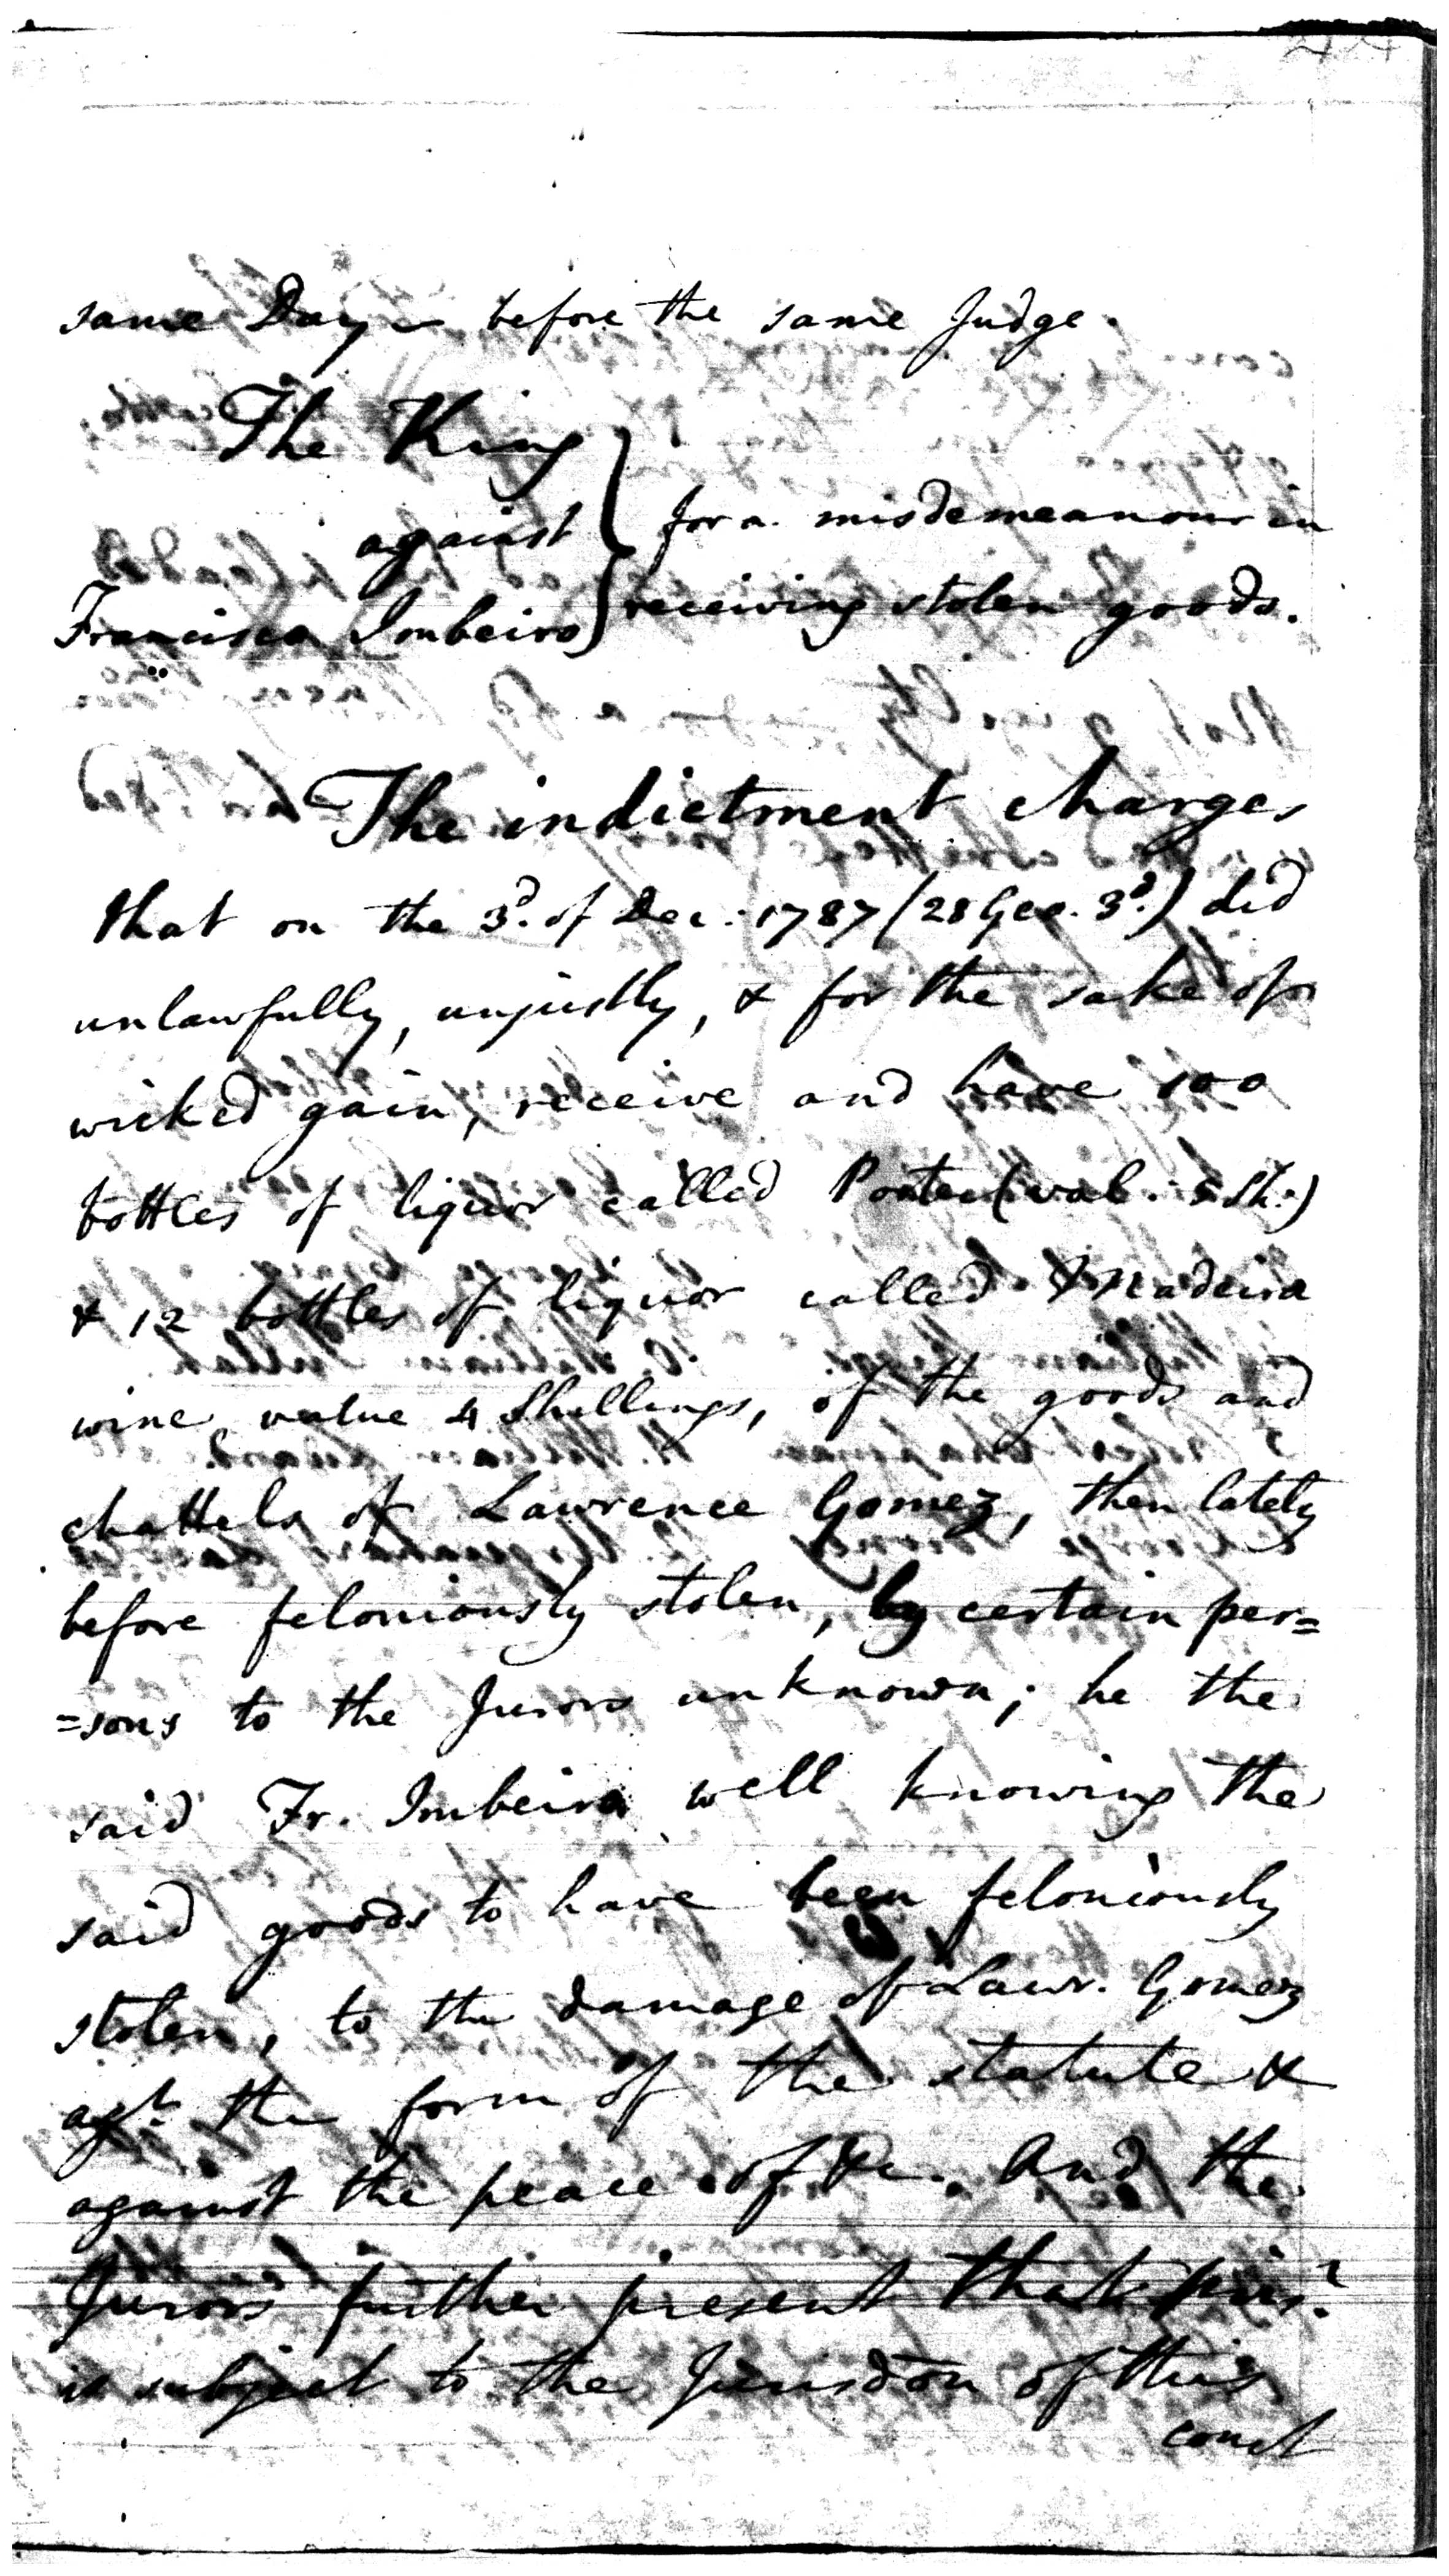 same Day – before the same Judge.
The King
against
for a misdemeanour in
Francisco Imbeiro
receiving stolen goods.
The indictment charges
that on the 3d. of Dec: 1787 (28 Geo. 3d.) did
unlawfully, unjustly, & for the sake of
wicked gain, receive and have 100
bottles of liquor called Porter (val. 5 Sh:)
& 12 bottles of liquor called Madeira
wine value 4 Shillings, of the goods and
chattels of Lawrence Gomez, then lately
before feloniously stolen, by certain per=
=sons to the Jurors unknown; he the
said Fr. Imbeiro well knowing the
said goods to have been feloniously
stolen, to the damage of Lawr. Gomez
agt. the form of the statute &
against the peace of &c. And the
Jurors further present that prisr.
is subject to the Jurisdon of this
court